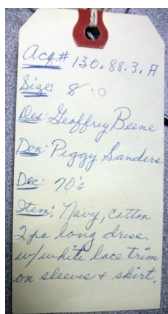 Acq.# 130.88.3.A
Size: 8 10
Des: Geoffrey Beene
Don: Peggy Sanders
Dec: 70's
Item: Navy, cotton
2 pc long dress
w/white lace trim
on sleeves & skirt.